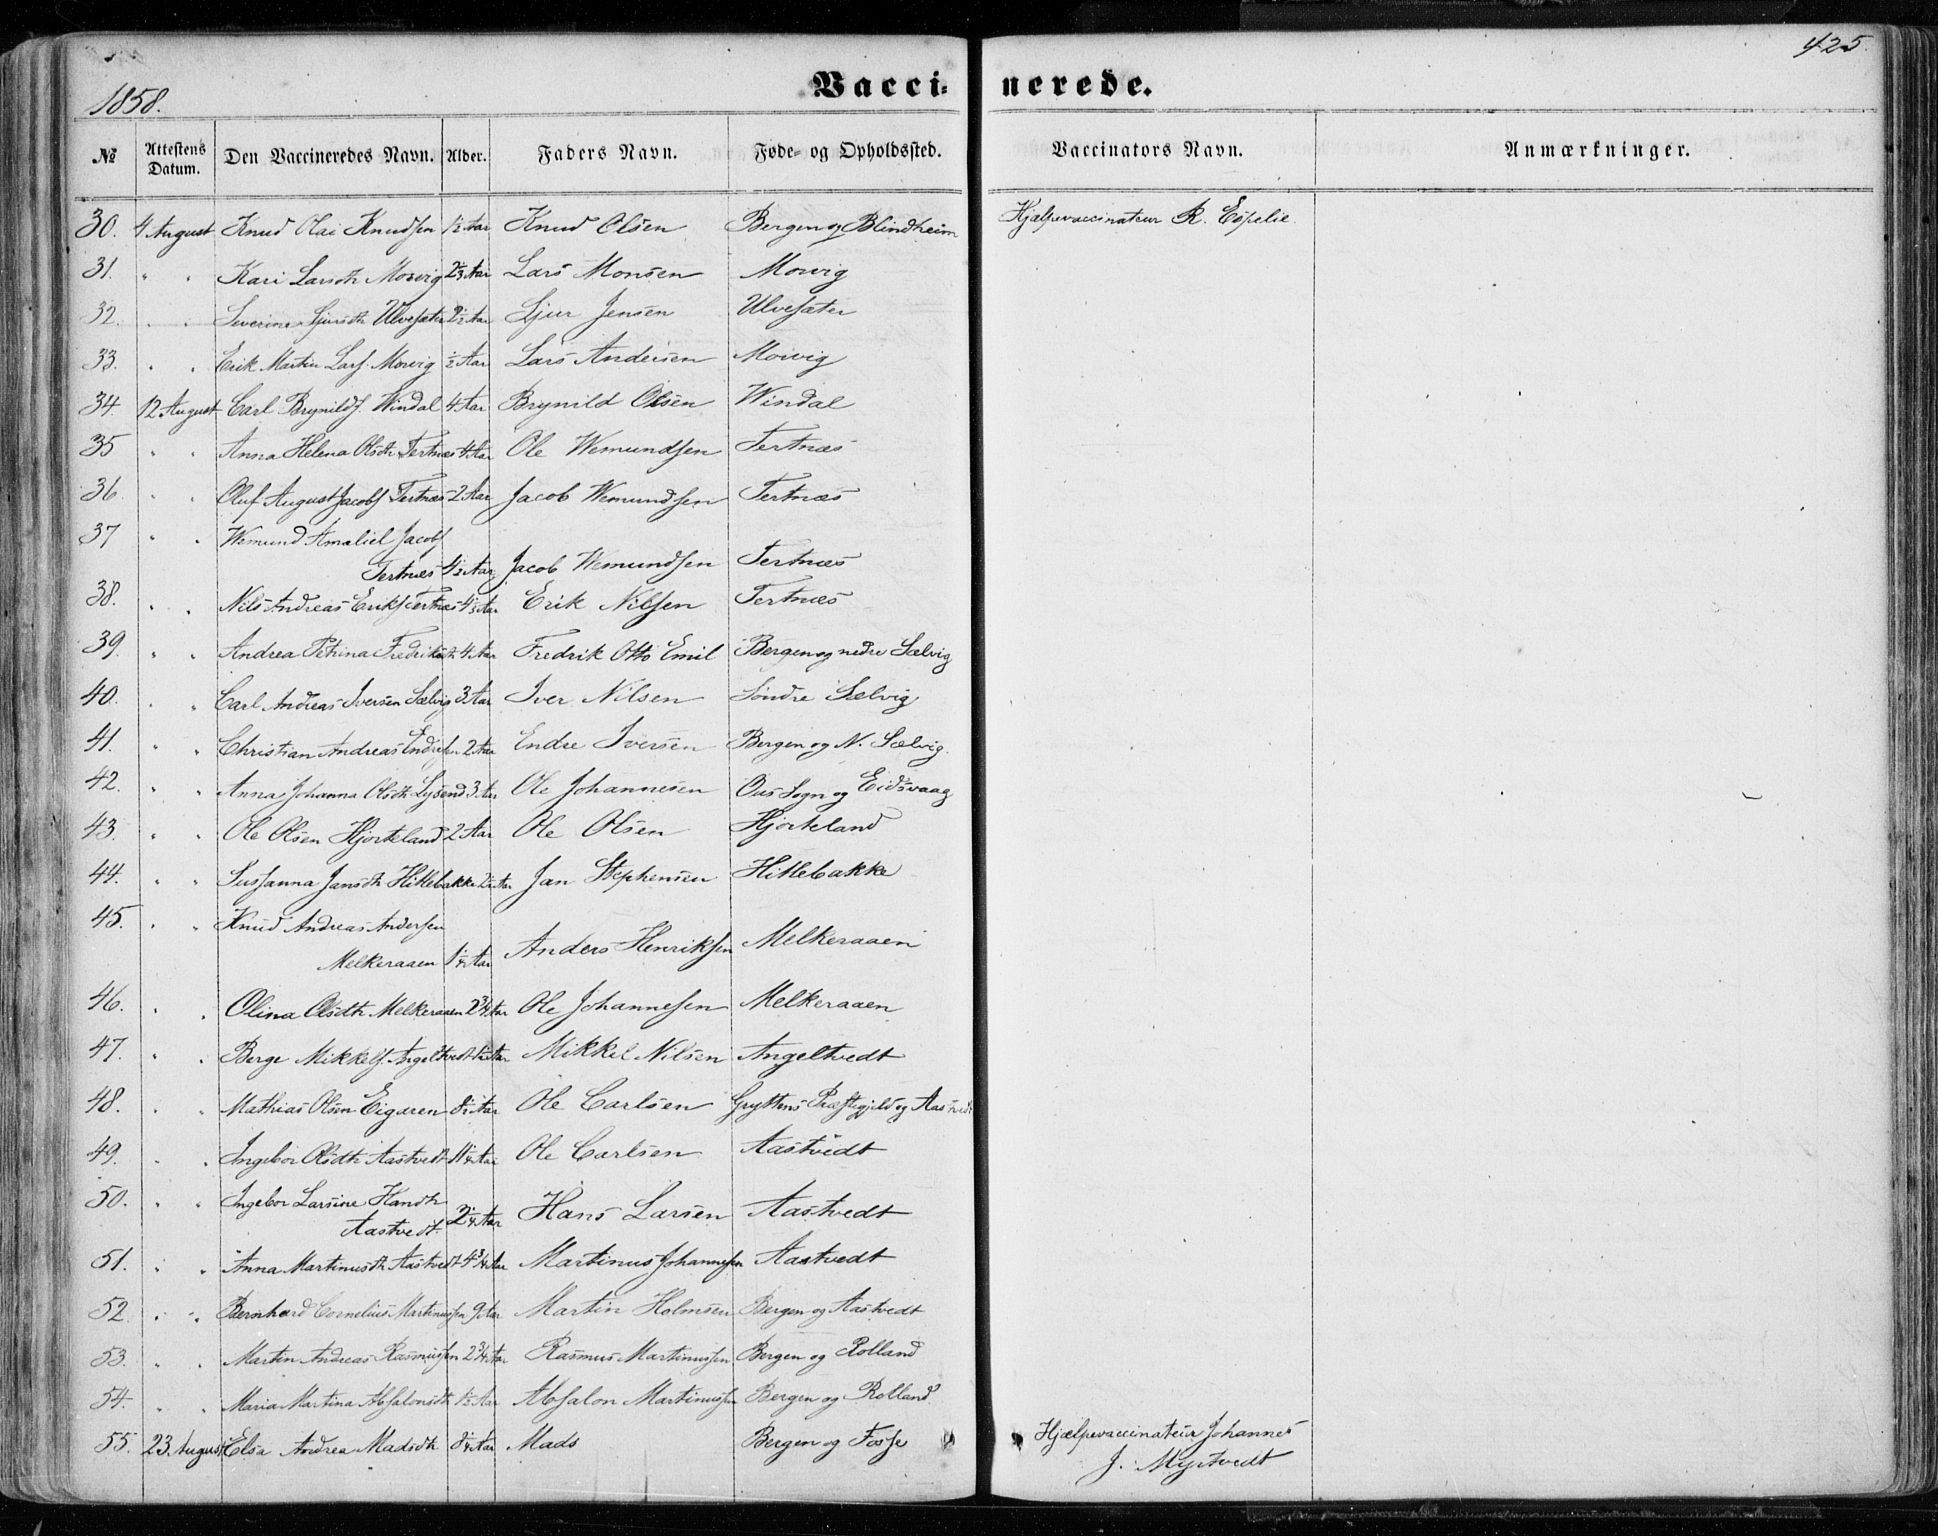 425.
Vaccinerede.
1858.
№ Attestens Datum. Den Vaccineredes Navn. Alder. Faders Navn. Føde- og Opholdssted. Vaccinators Navn. Anmærkninger.
30. 4 August Knud Olai Knudsen 1½ Aar Knud Olsen Bergen og Blindheim Hjælpevaccinateur R. Espelie
31. " " Kari Larsdtr Morvig Aar Lars Monsen Morvig
32. " " Severine Sjursdtr Ulvesæter 2½ Aar Sjur Jensen Ulvesæter
33. " " Erik Martin Lars. Morvig ½ Aar Lars Andersen Morvig
34. 12 August Carl Brynilds. Windal 4 Aar Brynild Olsen Windal
35 " " Anna Helena Olsdtr Tertnæs 4 Aar Ole Wemundsen Tertnæs
36. " " Oluf August Jacobs Tertnæs 2 Aar Jacob Wemundsen Tertnæs
37 " " Wemund Amaliel Jacobs
Tertnæs 4½ Aar Jacob Wemundsen Tertnæs
38. " " Nils Andreas Eriks Tertnæs Aar Erik Nilsen Tertnæs
39. " " Andrea Petrina Fredriksdtr 4 Aar Fredrik Otto Emil Bergen og nedre Sælvig
40. " " Carl Andreas Iversen Sælvig 3 Aar Iver Nilsen Søndre Sælvig
41. " " Christian Andreas Endresen 2 Aar Endre Iversen Bergen og N. Sælvig.
42. " " Anna Johanna Olsdtr 3 Aar Ole Johannesen Ous Sogn og Eidsvaag
43. " " Ole Olsen Hjorteland 2 Aar Ole Olsen Hjorteland
44. " " Susanna Jansdtr Hittebakke Aar Jan Stephensen Hittebakke
45. " " Knud Andreas Andersen
Melkeraaen 1¼ Aar Anders Henriksen Melkeraaen
46. " " Olina Olsdtr Melkeraaen 2¾ Aar Ole Johannesen Melkeraaen
47. " " Berge Mikkels. Angeltvedt Aar Mikkel Nilsen Angeltvedt
48. " " Mathias Olsen Eigaren Aar Ole Carlsen Gryttens Præstegjeld og Aastvedt
49. " " Ingebor Olsdtr Aastvedt Aar Ole Carlsen Aastvedt
50. " " Ingebor Larsine Handtr
Aastvedt 2¼ Aar Hans Larsen Aastvedt
51. " " Anna Martinusdtr Aastvedt 4¾ Aar Martinus Johannesen Aastvedt
52. " " Bernhard Cornelius Martinussen 9 Aar Martin Holmsen Bergen og Aastvedt
53. " " Martin Andreas Rasmussen 2¾ Aar Rasmus Martinussen Bergen og Rolland
54. " " Maria Martina Absalonsdtr 1½ Aar Absalon Martinussen Bergen og Rolland
55. 23 August Elsa Andrea Madsdtr Aar Mads Bergen og Fosse Hjælpevaccinateur Johannes
J. Myrtvedt